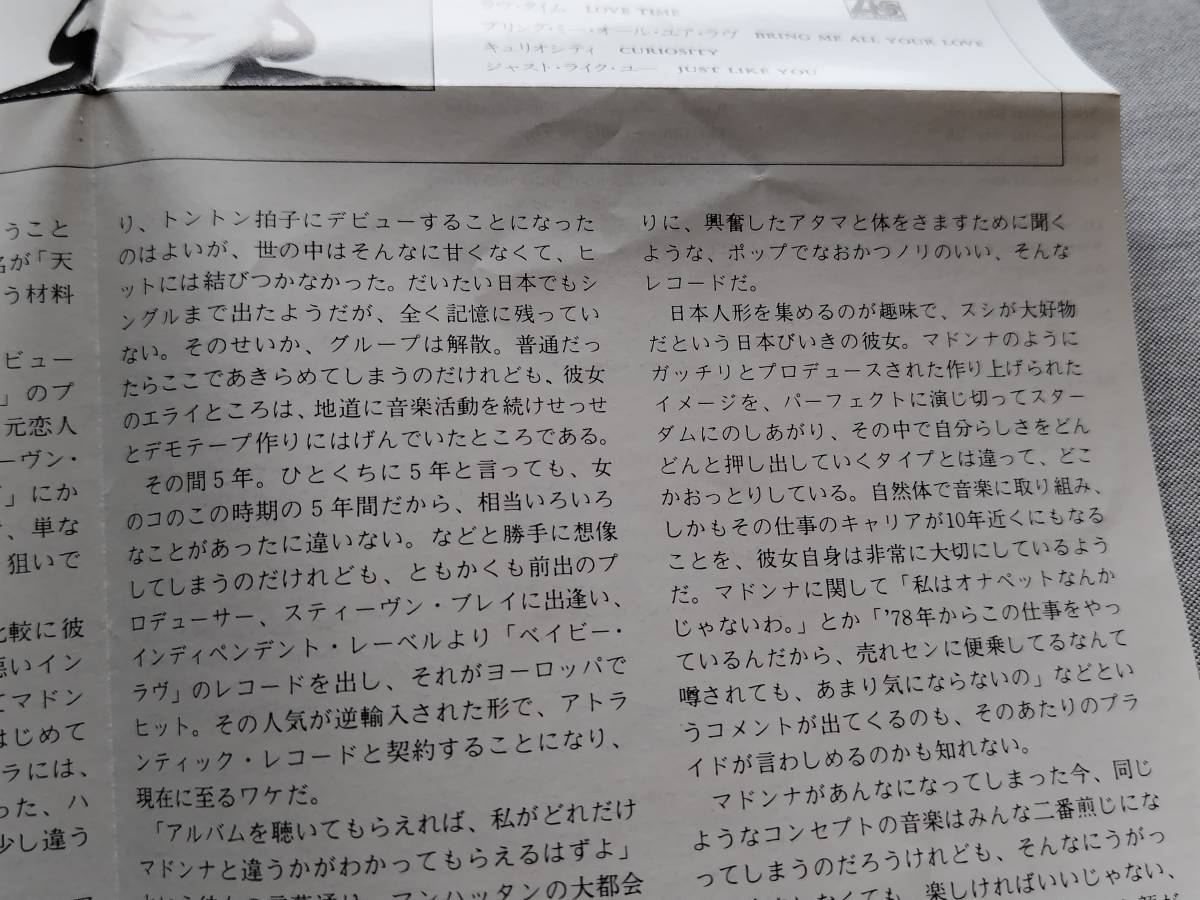 ラヴ・タイム LOVE TIME
ブリング・ミー・オール・ユア・ラヴ BRING ME ALL YOUR LOVE
キュリオシティ CURIOSITY
ジャスト・ライク・ユー JUST LIKE YOU
うこと
名が「天
う材料
ビュー
」のプ
元恋人
ーヴン・
」にか
、単な
狙いで
比較に彼
悪いイン
てマドン
はじめて
ラには、
った、ハ
少し違う
り、トントン拍子にデビューすることになった
のはよいが、世の中はそんなに甘くなくて、ヒ
ットには結びつかなかった。だいたい日本でもシ
ングルまで出たようだが、全く記憶に残ってい
ない。そのせいか、グループは解散。普通だっ
たらここであきらめてしまうのだけれども、彼女
のエライところは、地道に音楽活動を続けせっせ
とデモテープ作りにはげんでいたところである。
その間5年。ひとくちに5年と言っても、女
のコのこの時期の5年間だから、相当いろいろ
なことがあったに違いない。などと勝手に想像
してしまうのだけれども、ともかくも前出のプ
ロデューサー、スティーヴン・ブレイに出逢い、
インディペンデント・レーベルより「ベイビー・
ラヴ」のレコードを出し、それがヨーロッパで
ヒット。その人気が逆輸入された形で、アトラ
ンティック・レコードと契約することになり、
現在に至るワケだ。
「アルバムを聴いてもらえれば、私がどれだけ
マドンナと違うかがわかってもらえるはずよ」
マンハッタンの大都会
りに、興奮したアタマと体をさますために聞く
ような、ポップでなおかつノリのいい、そんな
レコードだ。
日本人形を集めるのが趣味で、スシが大好物
だという日本びいきの彼女。マドンナのように
ガッチリとプロデュースされた作り上げられた
イメージを、パーフェクトに演じ切ってスター
ダムにのしあがり、その中で自分らしさをどん
どんと押し出していくタイプとは違って、どこ
かおっとりしている。自然体で音楽に取り組み、
しかもその仕事のキャリアが10年近くにもなる
ことを、彼女自身は非常に大切にしているよう
だ。マドンナに関して「私はオナペットなんか
じゃないわ。」とか「'78年からこの仕事をやっ
ているんだから、売れセンに便乗してるなんて
噂されても、あまり気にならないの」などとい
うコメントが出てくるのも、そのあたりのプラ
イドが言わしめるのかも知れない。
マドンナがあんなになってしまった今、同じ
ようなコンセプトの音楽はみんな二番煎じにな
ってしまうのだろうけれども、そんなにうがっ
しなくても、楽しければいいじゃない、